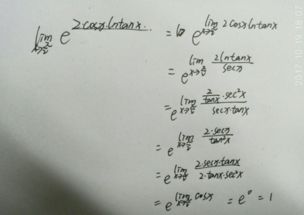 lim x→π/2 e^(2cosx·lntanx) = e^(lim x→π/2 2cosx lntanx)
= e^(lim x→π/2 2lntanx / secx)
= e^(lim x→π/2 (2/tanx · sec²x) / (secx·tanx))
= e^(lim x→π/2 2·secx / tan²x)
= e^(lim x→π/2 2·secx·tanx / 2·tanx·sec²x)
= e^(lim x→π/2 cosx) = e⁰ = 1